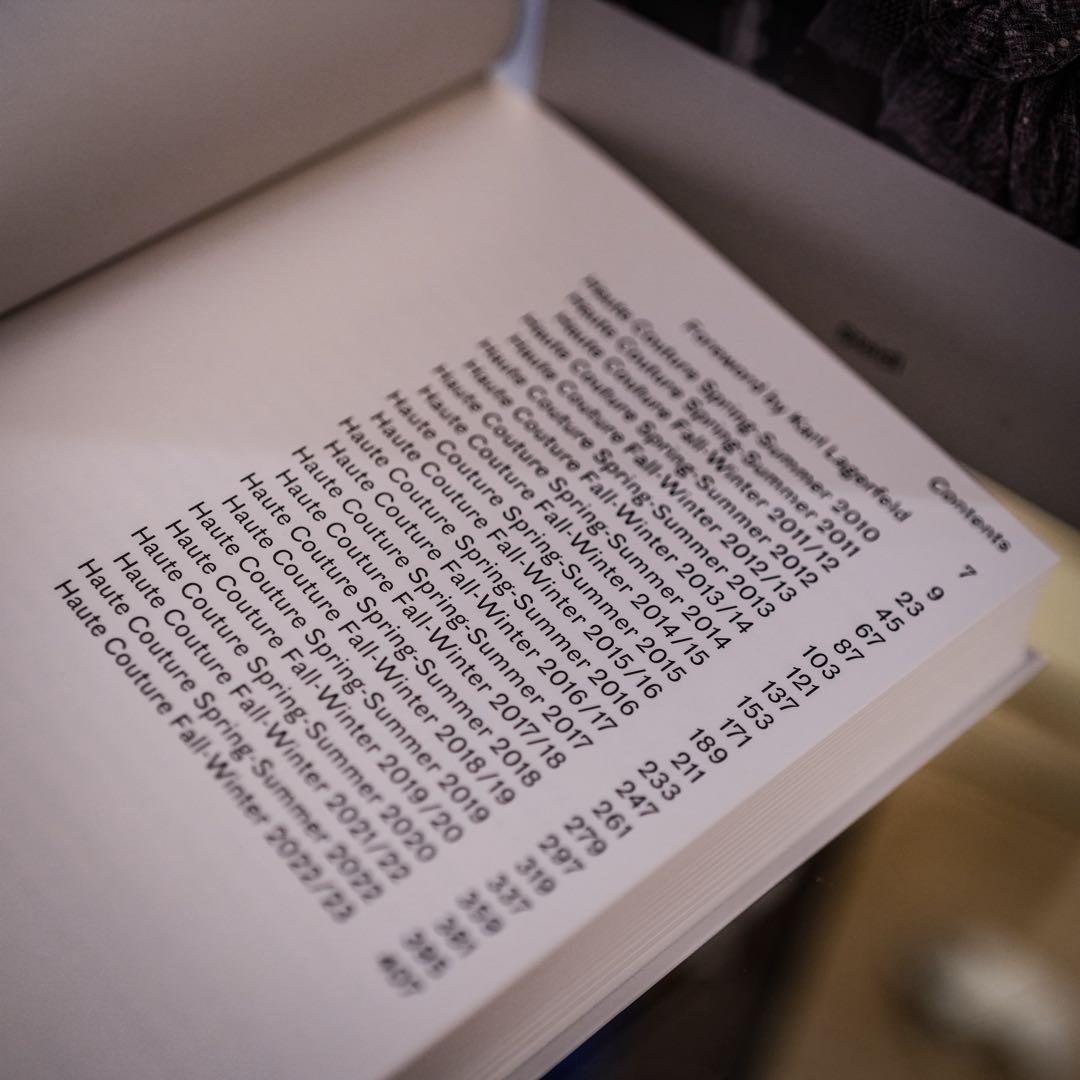 Contents
Foreword by Karl Lagerfeld 7
Haute Couture Spring-Summer 2010 9
Haute Couture Spring-Summer 2011 23
Haute Couture Fall-Winter 2011/12 45
Haute Couture Spring-Summer 2012 67
Haute Couture Fall-Winter 2012/13 87
Haute Couture Spring-Summer 2013 103
Haute Couture Fall-Winter 2013/14 121
Haute Couture Spring-Summer 2014 137
Haute Couture Fall-Winter 2014/15 153
Haute Couture Spring-Summer 2015 171
Haute Couture Fall-Winter 2015/16 189
Haute Couture Spring-Summer 2016 211
Haute Couture Fall-Winter 2016/17 233
Haute Couture Spring-Summer 2017 247
Haute Couture Fall-Winter 2017/18 261
Haute Couture Spring-Summer 2018 279
Haute Couture Fall-Winter 2018/19 297
Haute Couture Spring-Summer 2019 319
Haute Couture Fall-Winter 2019/20 337
Haute Couture Spring-Summer 2020 359
Haute Couture Fall-Winter 2021/22 381
Haute Couture Spring-Summer 2022
Haute Couture Fall-Winter 2022/23 407